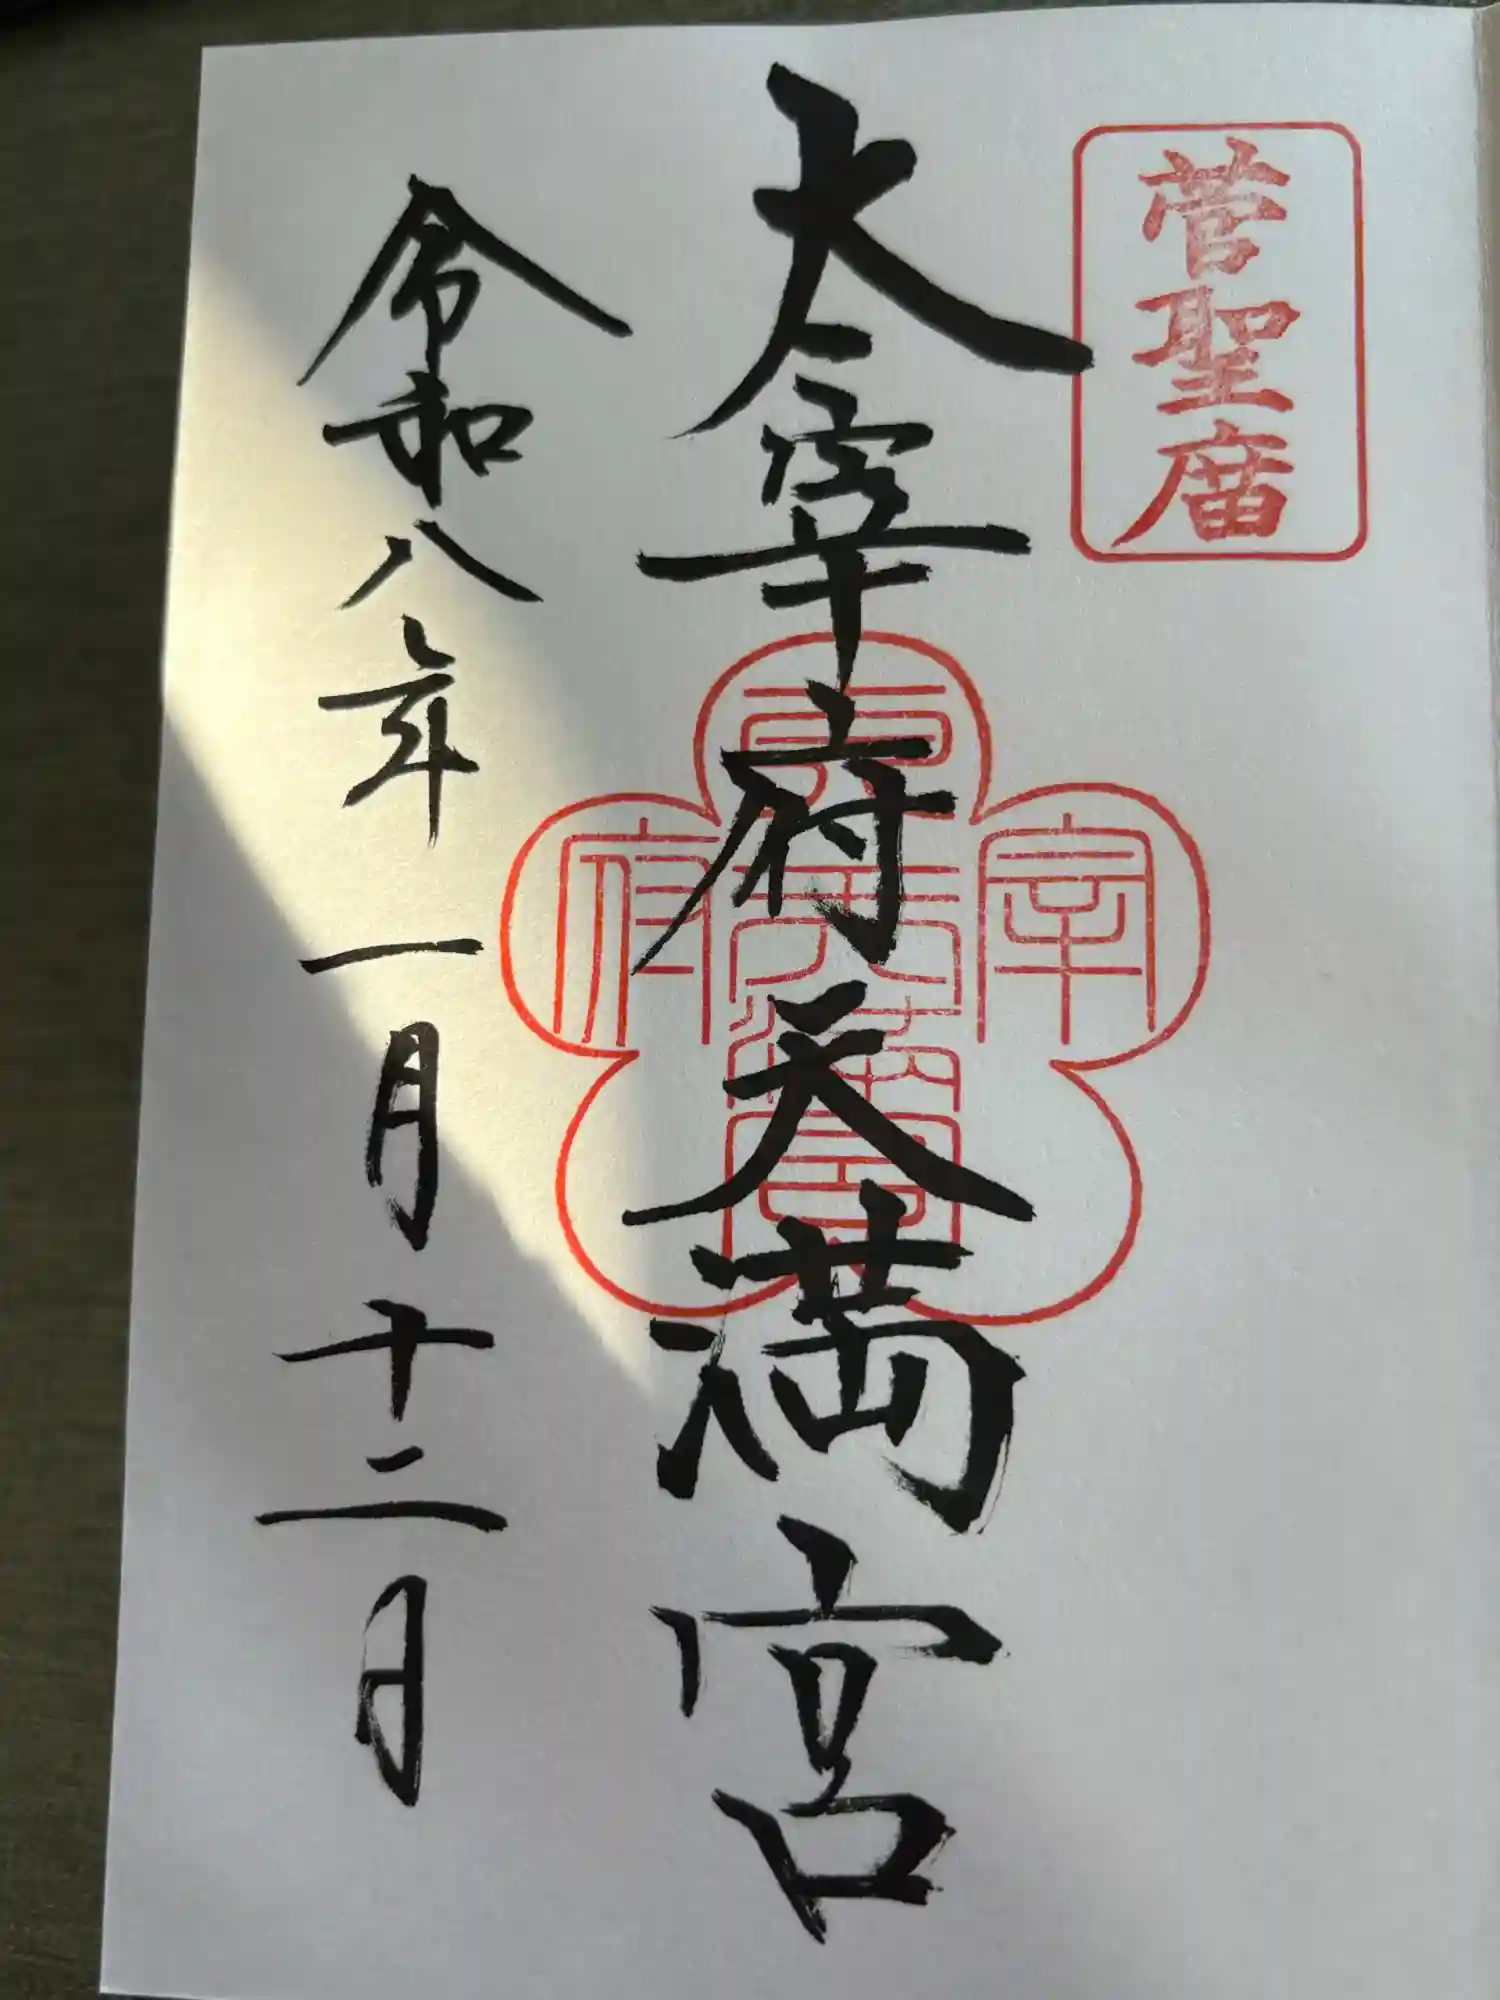 菅聖廣
太宰府天満宮
太宰府天満宮
令和八年一月十二日